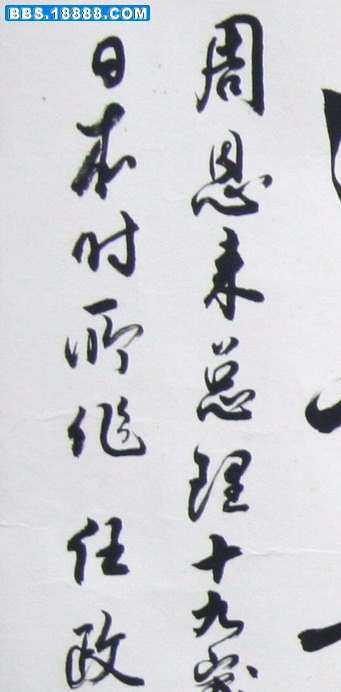 BBS.18888.COM
周恩来总理十九岁
日本时所作 任政